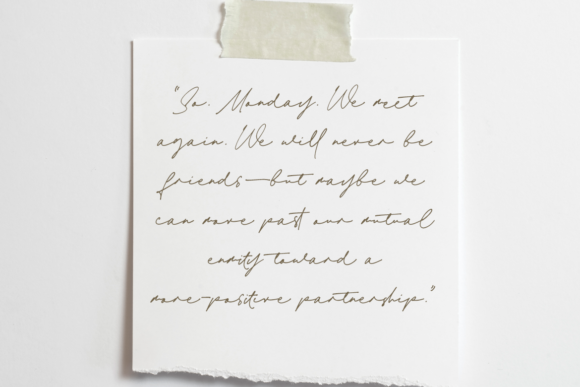 "So. Monday. We meet
again. We will never be
friends—but maybe we
can move past our mutual
enmity toward a
more-positive partnership."